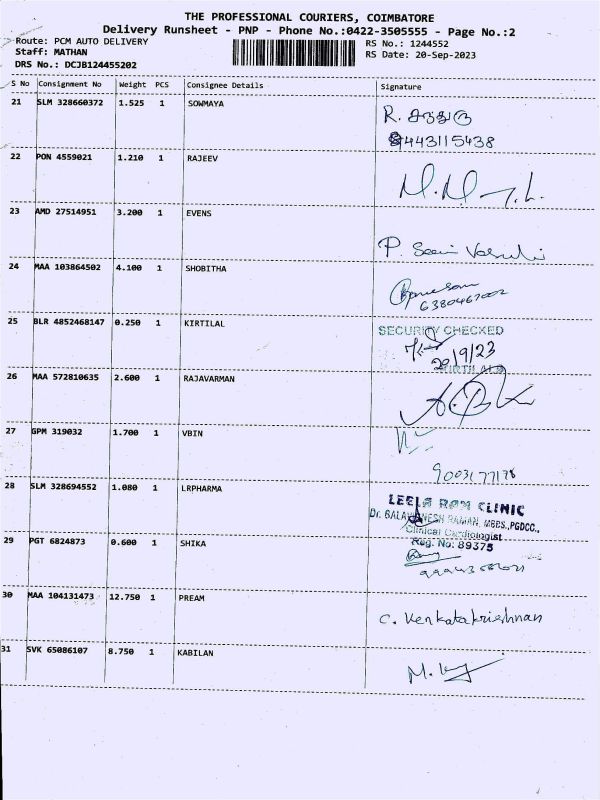 THE PROFESSIONAL COURIERS, COIMBATORE
Delivery Runsheet - PNP - Phone No.:0422-3505555 - Page No.:2
Route: PCM AUTO DELIVERY
RS No.: 1244552
Staff: MATHAN
RS Date: 20-Sep-2023
DRS No.: DCJB124455202
S No Consignment No Weight PCS Consignee Details Signature
21 SLM 328660372 1.525 1 SOWMAYA R.
9443115438
22 PON 4559021 1.210 1 RAJEEV
23 AMD 27514951 3.200 1 EVENS
P.
24 MAA 103864502 4.100 1 SHOBITHA
6380467002
25 BLR 4852468147 0.250 1 KIRTILAL SECURITY CHECKED
20/9/23
26 MAA 572810635 2.600 1 RAJAVARMAN
27 GPM 319032 1.700 1 VBIN
9003177178
28 SLM 328694552 1.080 1 LRPHARMA
LEELA RAM CLINIC
RAMAN, MBBS.,PGDCC.,
Clinical Cardiologist
Reg. No: 89375
29 PGT 6824873 0.600 1 SHIKA
30 MAA 104131473 12.750 1 PREAM
C. Venkatakrishnan
31 SVK 65086107 8.750 1 KABILAN